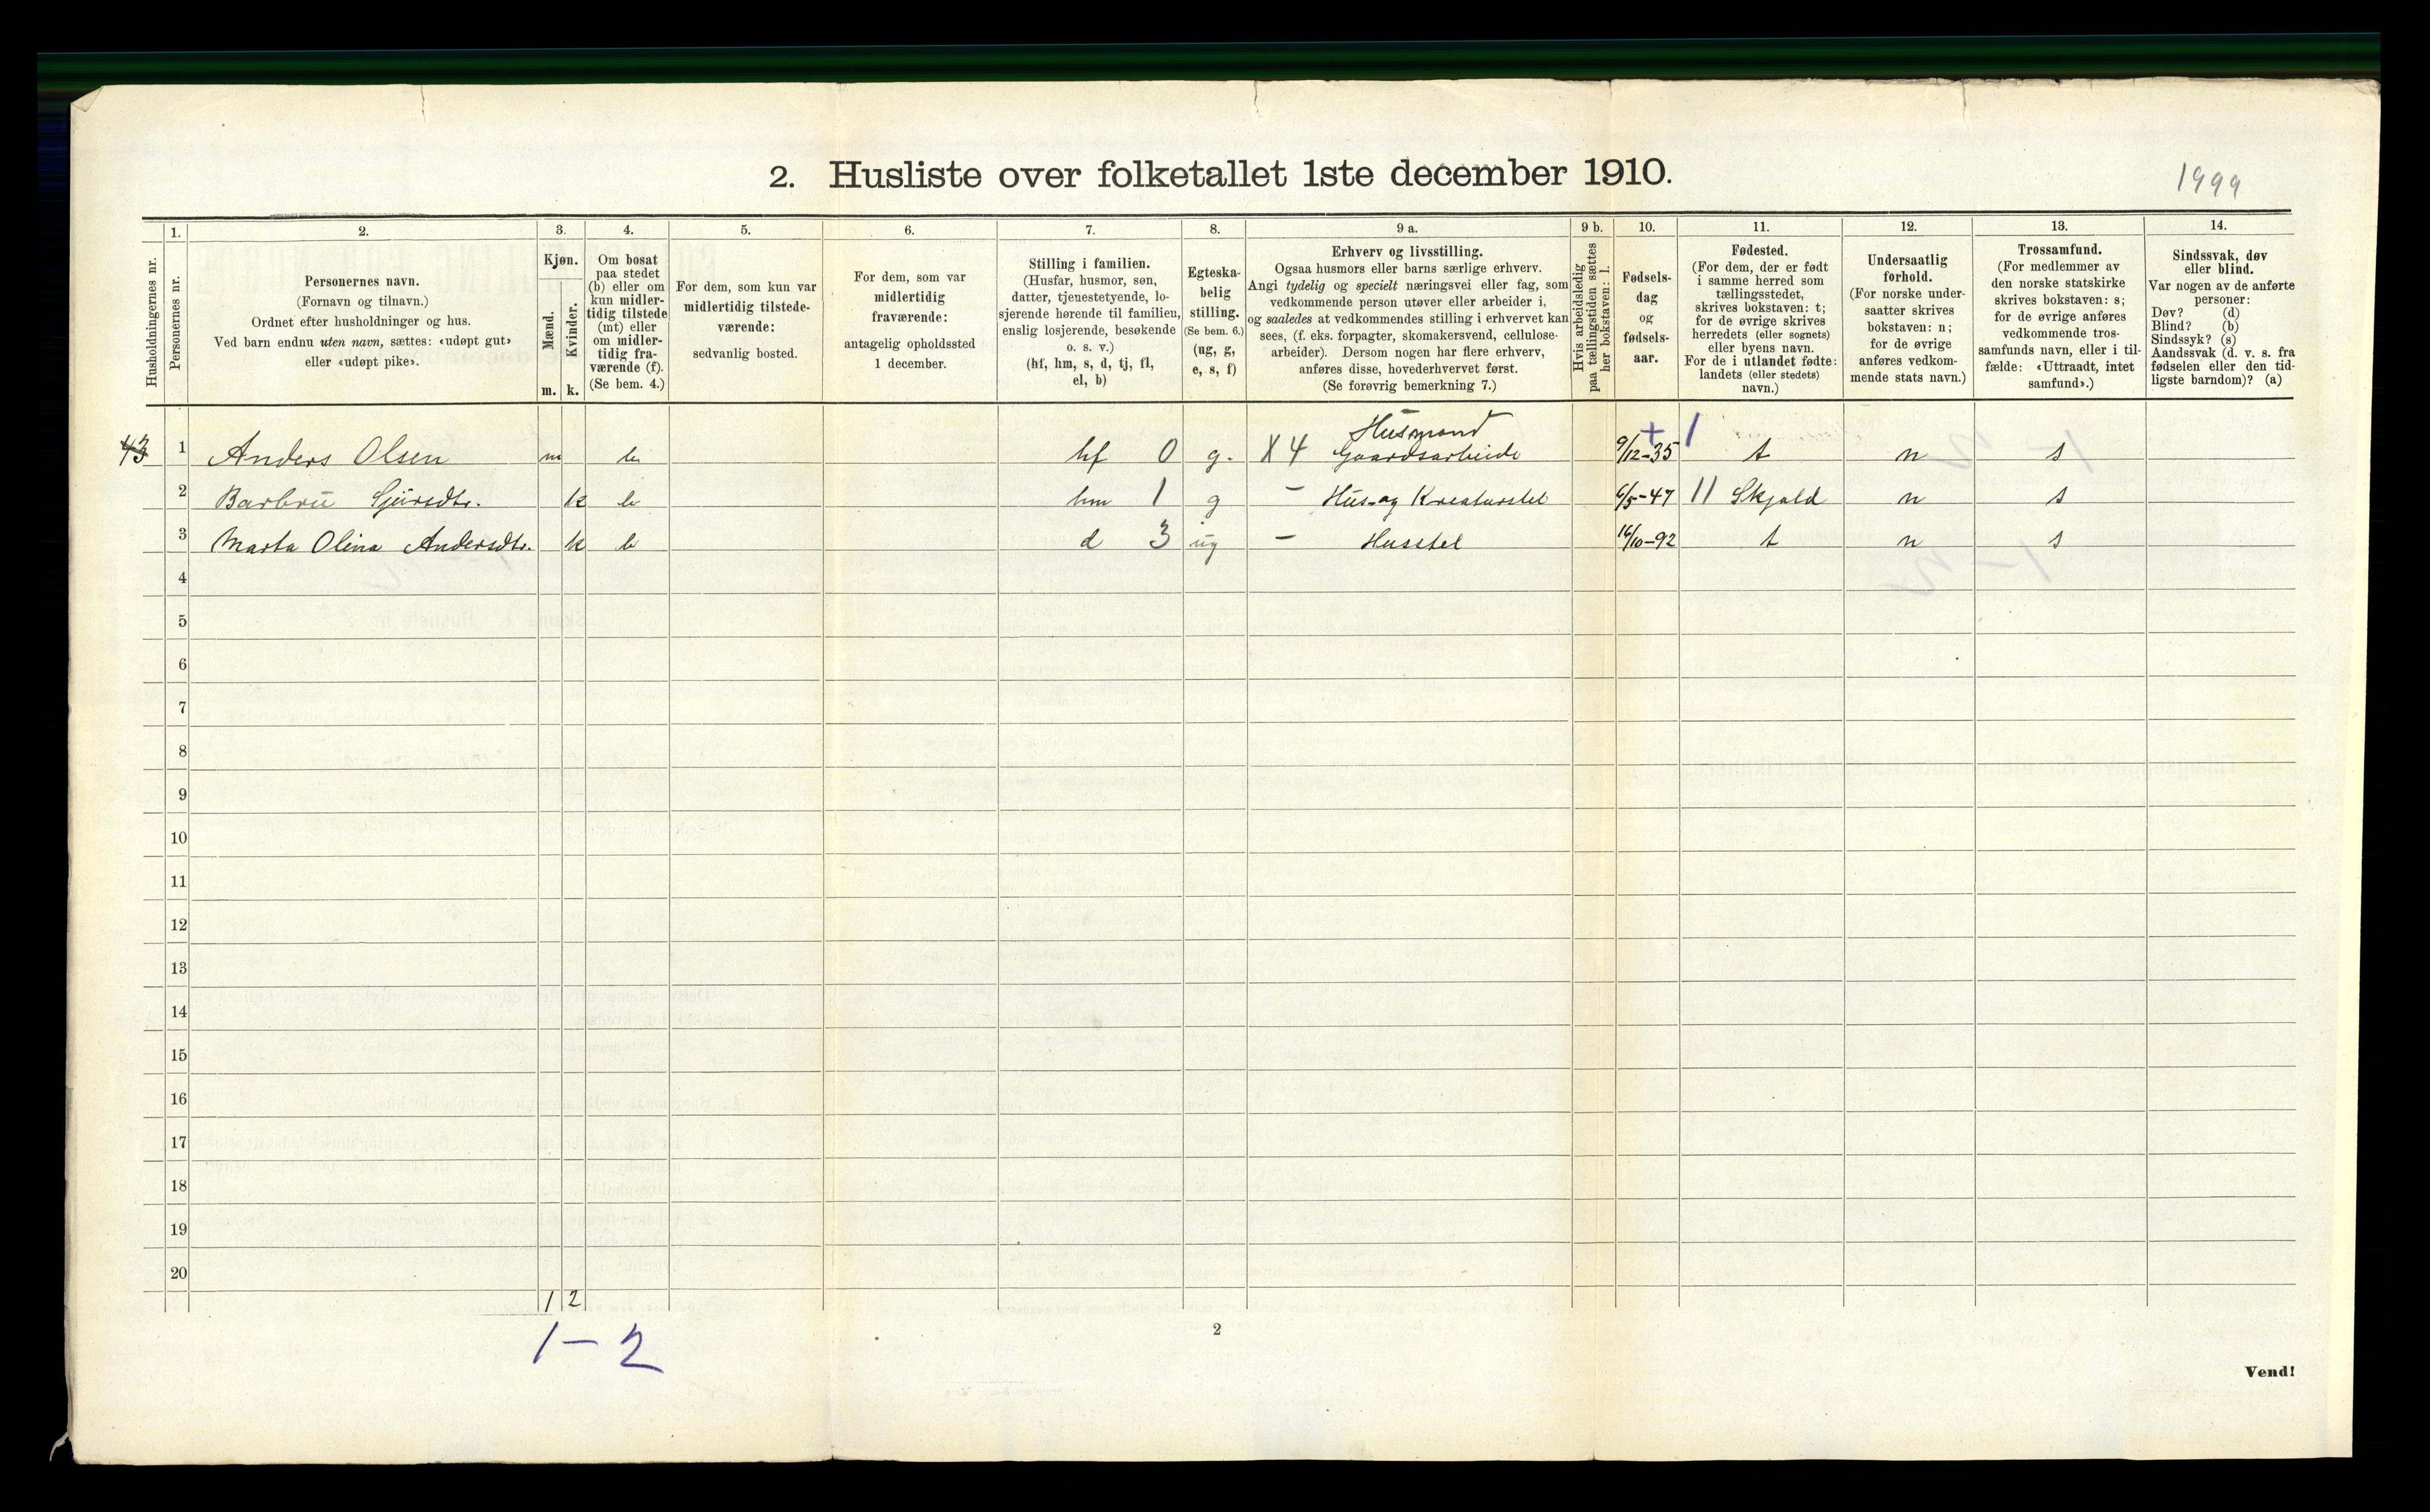 2. Husliste over folketallet 1ste december 1910.
1999
1. 2. 3. 4. 5. 6. 7. 8. 9 a. 9 b. 10. 11. 12. 13. 14.
Husholdningernes nr.
Personernes nr.
Personernes navn.
(Fornavn og tilnavn.)
Ordnet efter husholdninger og hus.
Ved barn endnu uten navn, sættes: «udøpt gut»
eller «udøpt pike».
Kjøn.
Mænd.
m.
Kvinder.
k.
Om bosat
paa stedet
(b) eller om
kun midler-
tidig tilstede
(mt) eller
om midler-
tidig fra-
værende (f).
(Se bem. 4.)
For dem, som kun var
midlertidig tilstede-
værende:
sedvanlig bosted.
For dem, som var
midlertidig
fraværende:
antagelig opholdssted
1 december.
Stilling i familien.
(Husfar, husmor, søn,
datter, tjenestetyende, lo-
sjerende hørende til familien,
enslig losjerende, besøkende
o. s. v.)
(hf, hm, s, d, tj, fl,
el, b)
Egteska-
belig
stilling.
(Se bem. 6.)
(ug, g,
e, s, f)
Erhverv og livsstilling.
Ogsaa husmors eller barns særlige erhverv.
Angi tydelig og specielt næringsvei eller fag, som
vedkommende person utøver eller arbeider i,
og saaledes at vedkommendes stilling i erhvervet kan
sees, (f. eks. forpagter, skomakersvend, cellulose-
arbeider). Dersom nogen har flere erhverv,
anføres disse, hovederhvervet først.
(Se forøvrig bemerkning 7.)
Hvis arbeidsledig
paa tællingstiden sættes
her bokstaven: l.
Fødsels-
dag
og
fødsels-
aar.
Fødested.
(For dem, der er født
i samme herred som
tællingsstedet,
skrives bokstaven: t;
for de øvrige skrives
herredets (eller sognets)
eller byens navn.
For de i utlandet fødte:
landets (eller stedets)
navn.)
Undersaatlig
forhold.
(For norske under-
saatter skrives
bokstaven: n;
for de øvrige
anføres vedkom-
mende stats navn.)
Trossamfund.
(For medlemmer av
den norske statskirke
skrives bokstaven: s;
for de øvrige anføres
vedkommende tros-
samfunds navn, eller i til-
fælde: «Uttraadt, intet
samfund».)
Sindssvak, døv
eller blind.
Var nogen av de anførte
personer:
Døv? (d)
Blind? (b)
Sindssyk? (s)
Aandssvak (d. v. s. fra
fødselen eller den tid-
ligste barndom)? (a)
Husmand + 1
1 Anders Olsen m b hf 0 g. X 4 Gaardsarbeide 9/12-35 t n s
2 Barbru Sjursdtr. k b hm 1 g - Hus-og Kreaturstel 6/5-47 11 Skjold n s
3 Marta Olina Andersdtr. k b d 3 ug - Husstel 16/10-92 t n s
4
5
6
7
8
9
10
11
12
13
14
15
16
17
18
19
20
1 2
1-2
2
Vend!